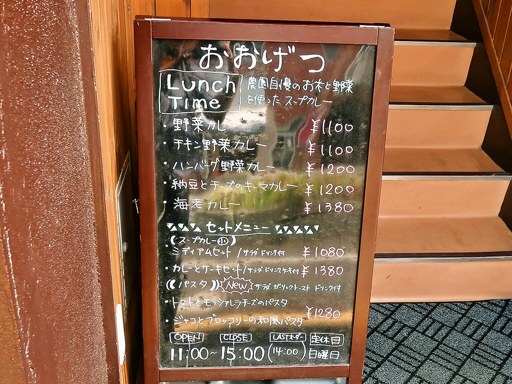 おおげつ
Lunch Time
農園自慢のお米と野菜
を使ったスープカレー
・野菜カレー ¥1100
・チキン野菜カレー ¥1100
・ハンバーグ野菜カレー ¥1200
・納豆とチーズのキーマカレー ¥1200
・海老カレー ¥1380
セットメニュー
(スープカレー小)
ミディアムセット/サラダ・ドリンク付 ¥1080
・カレーとケーキセット/サラダ・ドリンク・ケーキ付 ¥1380
(パスタ) New サラダ ガーリックトースト ドリンク付
・トマトとモッツァレラチーズのパスタ
・ジャコとブロッコリーの和風パスタ ¥1280
OPEN CLOSE LASTオーダー 定休日
11:00-15:00 (14:00) 日曜日